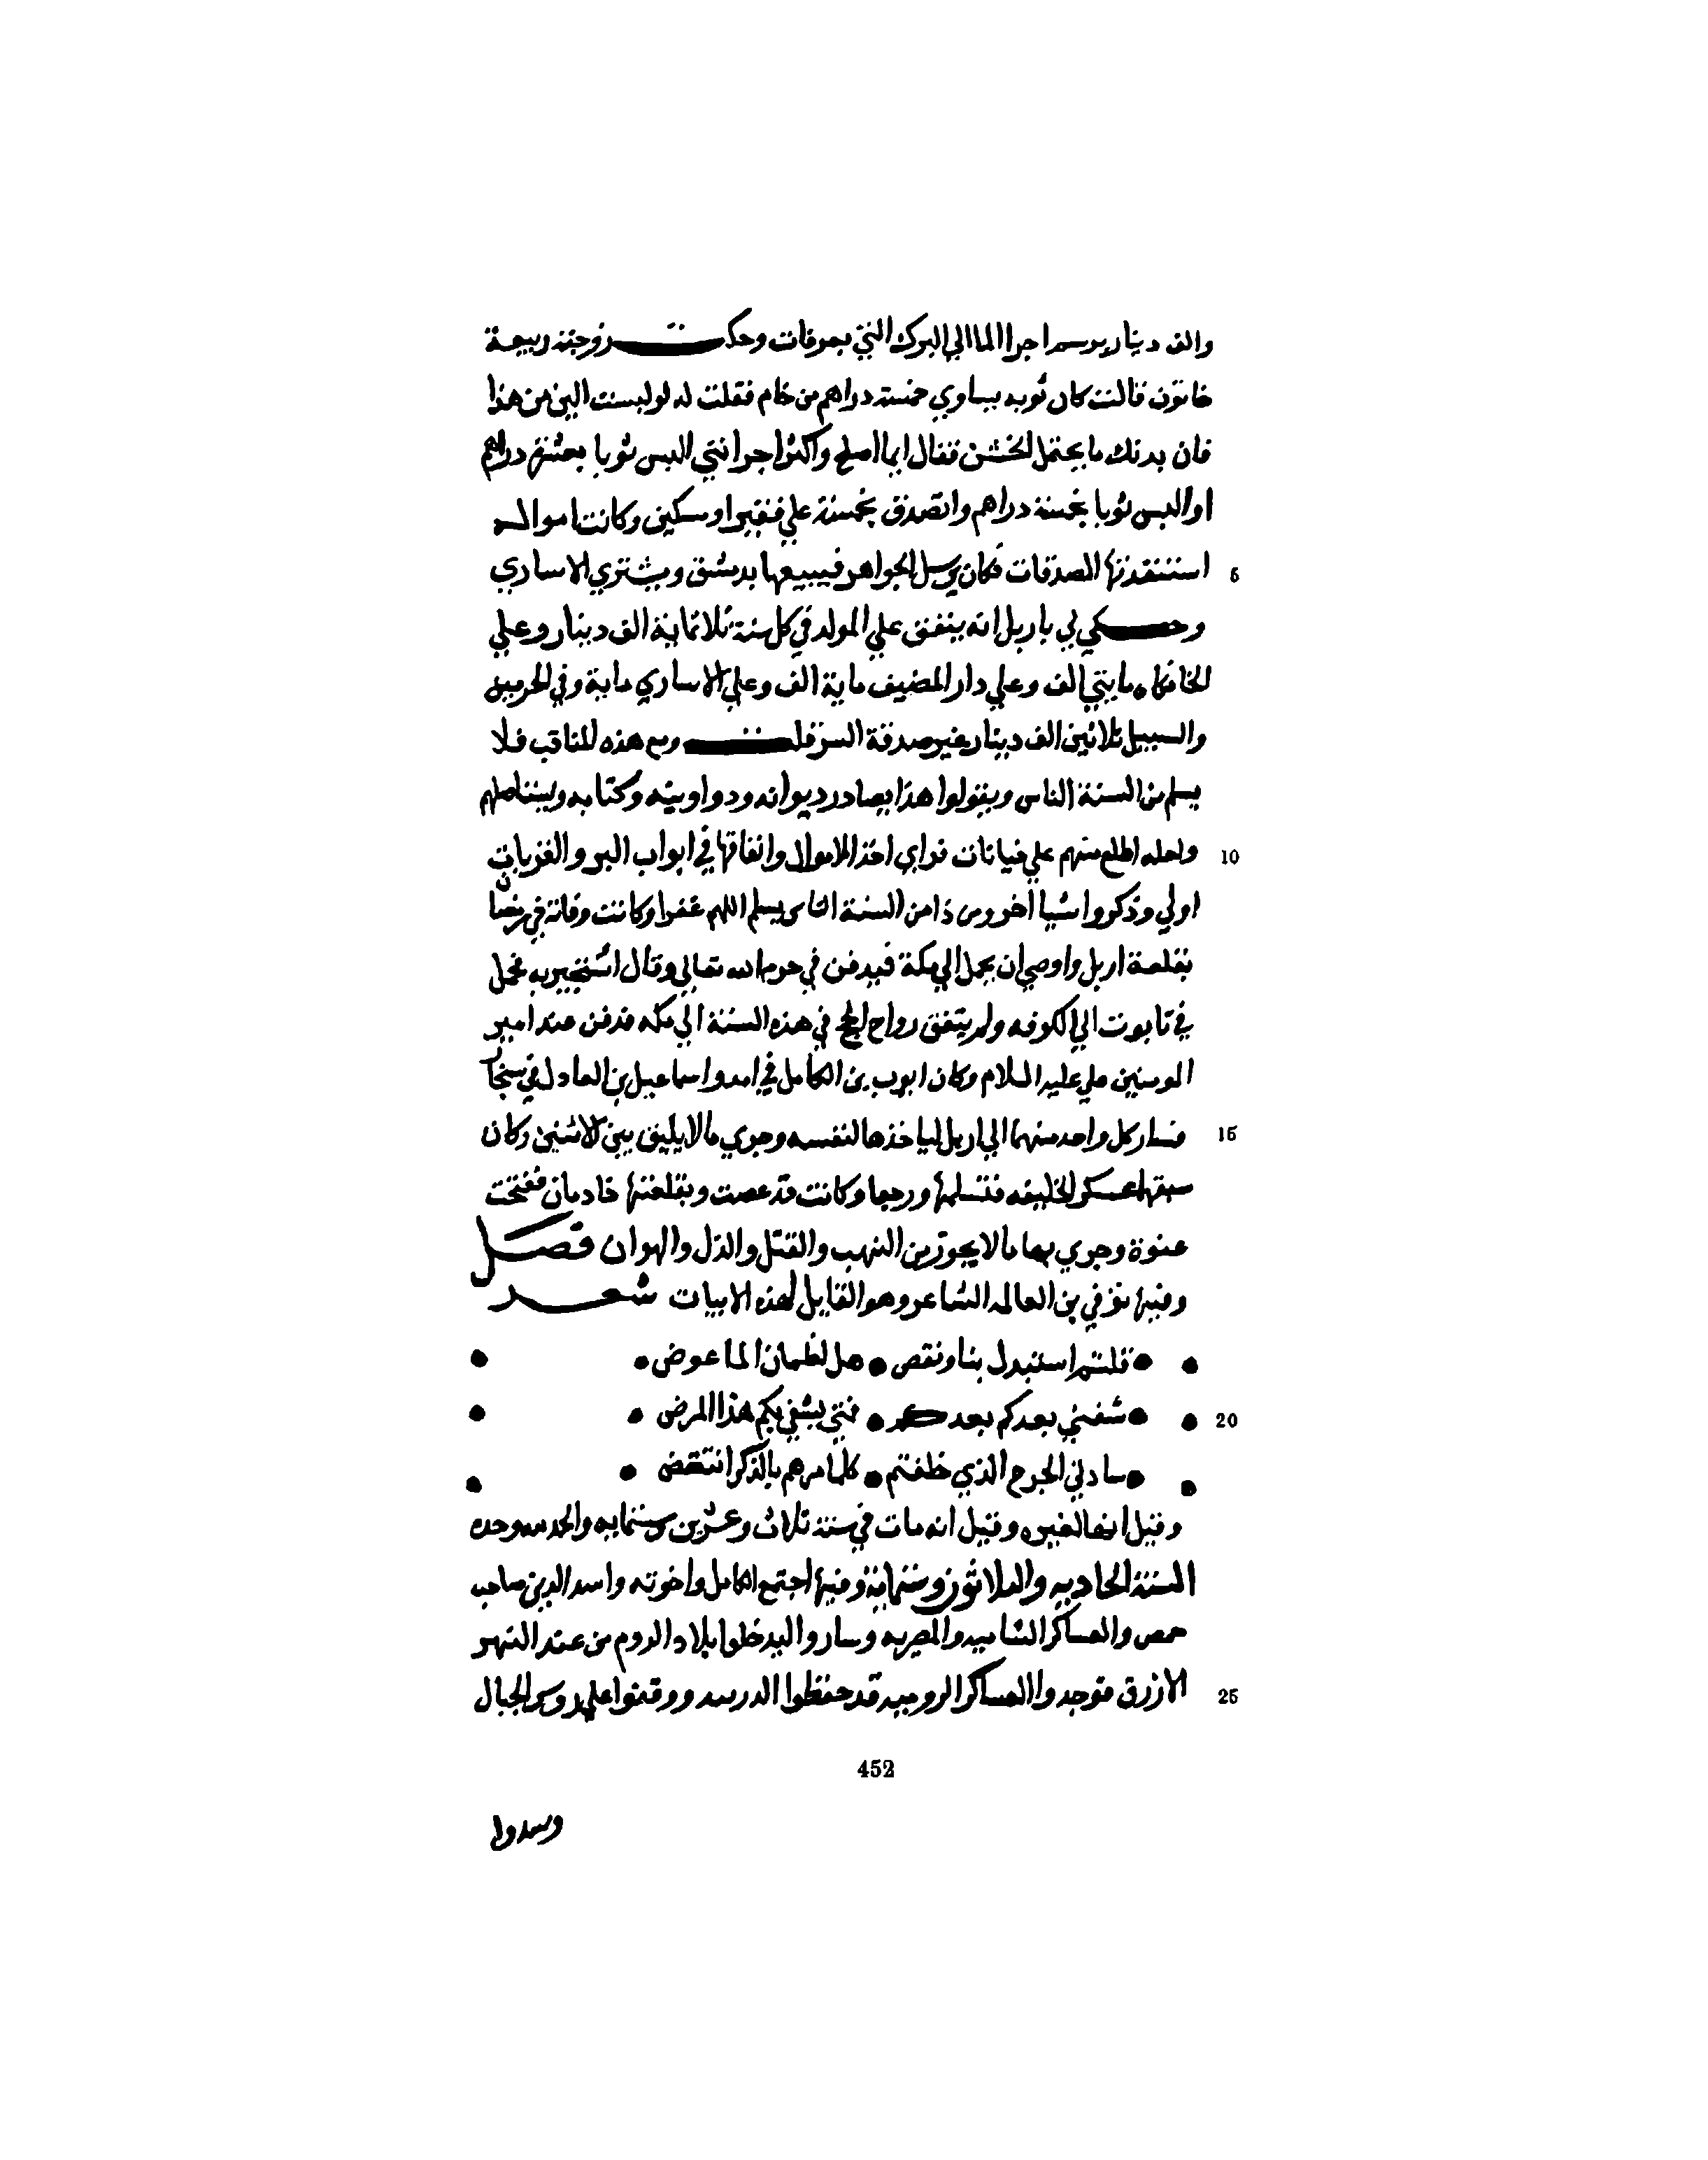 والف دينار برسم اجرا الما الي البرك التي بعرفات وحكت زوجته ربيعة
خاتون قالت كان ثوبه يساوي خمسة دراهم من خام فقلت له لو لبست الين من هذا
فان بدنك ما يحتمل الخشن فقال ايما اصلح واكثر اجرا انني البس ثوبا بعشرة دراهم
او البس ثوبا بخمسة دراهم واتصدق بخمسة علي فقير او مسكين وكانت امواله
5 استنفدتها الصدقات فكان يرسل الجواهر فيبيعها بدمشق ويشتري الاساري
وحكي لي باربل انه ينفق علي المولد في كل سنة ثلاثماية الف دينار وعلي
الخانكاه مايتي الف وعلي دار المضيف ماية الف وعلي الاساري ماية وفي الحرمين
والسبيل ثلاثين الف دينار غير صدقة السر قلت ومع هذه المناقب فلا
يسلم من السنة الناس ويقولوا هذا يصادر ديوانه ودواوينه وكتابه ويستاصلهم
10 ولعله اطلع منهم علي خيانات فراي اخذ الاموال وانفاقها في ابواب البر والقربات
اولي وذكروا شيا اخر ومن ذا من السنة الناس يسلم اللهم غفرا وكانت وفاته في رمضان
بقلعة اربل واوصي ان يحمل الي مكة فيدفن في حرم الله تعالي وقال استجير به فحمل
في تابوت الي الكوفه ولم يتفق رواح الحج في هذه السنة الي مكه فدفن عند امير
المومنين علي عليه السلام وكان ايوب بن الكامل في امد واسماعيل بن العادل في سنجار
15 فسار كل واحد منهما الي اربل لياخذها لنفسه وجري ما لا يليق بين الاثنين وكان
سبقهما عسكر الخليفه فتسلمها ورجعا وكانت قد عصت وبقلعتها خادمان ففتحت
عنوة وجري بها ما لا يجوز من النهب والقتل والذل والهوان فصل
وفيها توفي بن العالمه الشاعر وهو القايل هذه الابيات شعر
• • قلتم استبدل بنا ونقص • هل لظمان الما عوض • •
20 • • شفني بعدكم بعدكم • فمتي يشفي بكم هذا المرض • •
• • سادني الجرح الذي خلفتم • كلما مرهم بالذكر انتقض • •
وقيل انها لغيره وقيل انه مات في سنة ثلاث وعشرين وستمايه والحمد لله وحده
السنة الحاديه والثلاثون وستماية وفيها اجتمع الكامل واخوته واسد الدين صاحب
حمص والعساكر الشاميه والمصريه وساروا ليدخلوا بلاد الروم من عند النهر
25 الازرق فوجدوا العساكر الروميه قد حفظوا الدربند ووقفوا علي روس الجبال
452
وسدوا